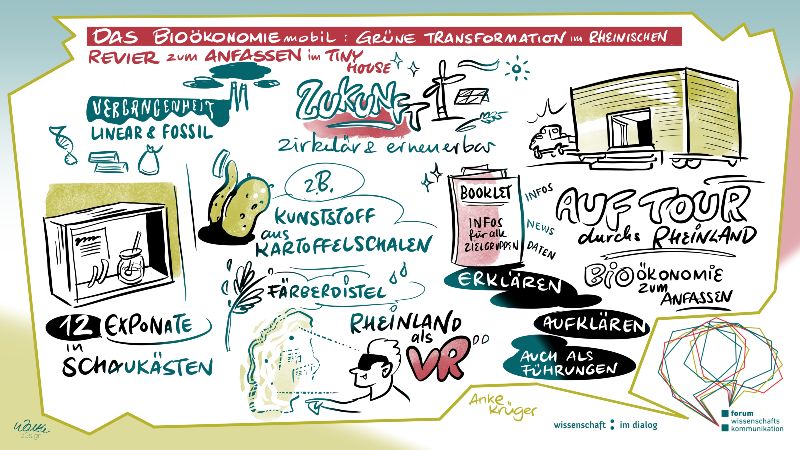 DAS BIOÖKONOMIEmobil: GRÜNE TRANSFORMATION im RHEINISCHEN
REVIER zum ANFASSEN im TINY
HOUSE
VERGANGENHEIT
LINEAR & FOSSIL
ZUKUNFT
zirkulär & erneuerbar
z.B.
KUNSTSTOFF
aus
KARTOFFELSCHALEN
FÄRBERDISTEL
12 EXPONATE
in
SCHAUKÄSTEN
RHEINLAND
als
VR
BOOKLET
INFOS
für alle
ZIELGRUPPEN
INFOS
NEWS
DATEN
ERKLÄREN
AUFKLÄREN
AUCH ALS
FÜHRUNGEN
AUF TOUR
durchs RHEINLAND
BIOÖKONOMIE
zum
ANFASSEN
Anke
Krüger
wissenschaft : im dialog
forum
wissenschafts
kommunikation